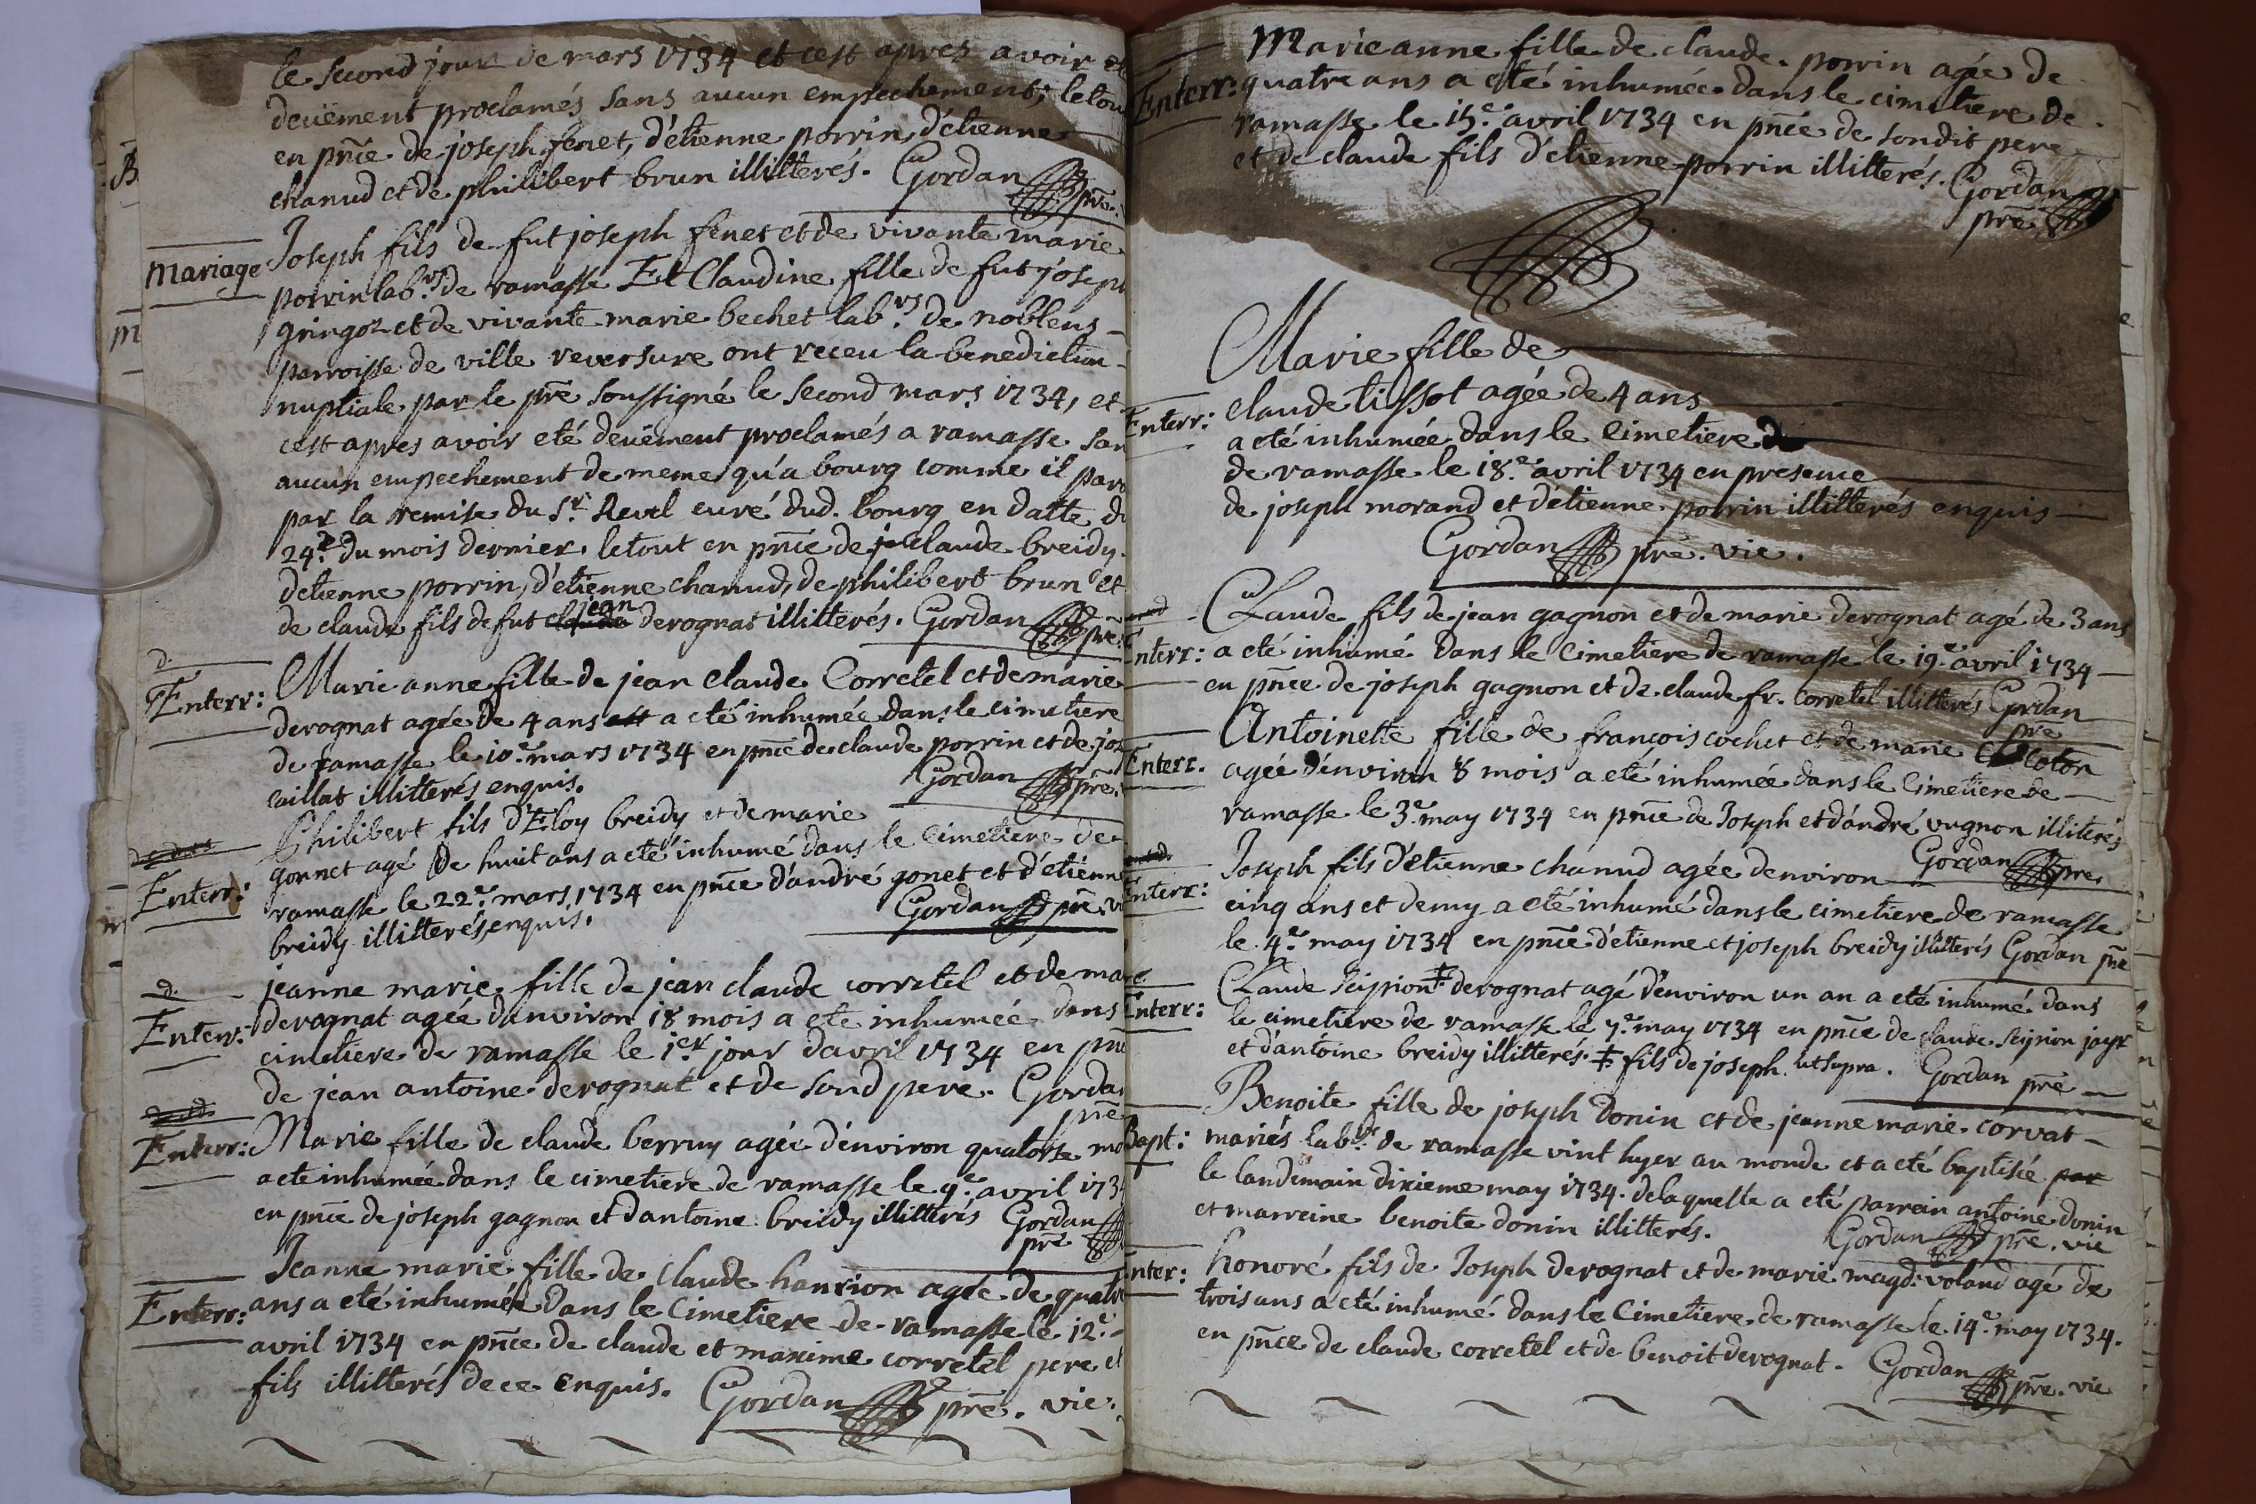 le second jour de mars 1734 et cest apres avoir
deuëment proclamés sans aucun empechement; le tou
en pñce de joseph fenet, d'étienne porrin d'étienne
chanud et de philibert brun illitterés. Gordan prē.
Mariage
Joseph fils de fut joseph fenet et de vivante marie
porrin labrs. de ramasse Et Claudine fille de fut joseph
gringoz et de vivante marie bechet labrs. de noblens
parroisse de ville reversure ont receu la benediction
nuptiale par le prē soussigné le second mars 1734, et
cest apres avoir eté deuëment proclamés a ramasse san
aucun empechement de meme qu'a bourg comme il paro
par la remise du Sr. Revel curé dud. bourg en datte d
24e. du mois dernier. le tout en pñce de claude breidy.
detienne porrin, d'etienne chanud, de philibert brun et
de claude fils de fut jean derognat illitterés. Gordan prē.
d.
Enterr:
Marie anne fille de jean claude Corretel et de marie
derognat agée de 4 ans a eté inhumée dans le cimetiere
de ramasse le 10e. mars 1734 en pñce de claude porrin et de jos
caillat illitterés enquis. Gordan prē.
Enterr:
Philibert fils d'Eloy breidy et de marie
gonnet agé de huit ans a eté inhumé dans le Cimetiere de
ramasse le 22e. mars 1734 en pñce d'andré gonet et d'étienn
breidy illitterés enquis. Gordan prē. vi
d.
Enterr:
jeanne marie fille de jean claude corretel et de mar
derognat agée denviron 18 mois a eté inhumée dans
cimetiere de ramasse le 1er jour d'avril 1734 en pñc
de jean antoine derognat et de sond pere. Gordan
prē
Enterr:
Marie fille de claude berruy agée d'environ quatorse mo
a eté inhumée dans le cimetiere de ramasse le 9e. avril 173
en pñce de joseph gagnon et d'antoine breidy illitterés Gordan
prē
Enterr:
Jeanne marie fille de Claude hanrion agée de quatre
ans a eté inhumée dans le Cimetiere de ramasse le 12e.
avril 1734 en pñce de claude et maxime corretel pere et
fils illitterés de ce enquis. Gordan prē. vic.
Marie anne fille de claude porrin agée de
Enterr: quatre ans a eté inhumée dans le cimetiere de
ramasse le 15e. avril 1734 en pñce de sondit pere
et de claude fils d'etienne porrin illitterés. Gordan
prē
Marie fille de
Enterr: claude tissot agée de 4 ans
a eté inhumée dans le Cimetiere
de ramasse le 18e. avril 1734 en presence
de joseph morand et d'étienne porrin illitterés enquis
Gordan prē. vic.
Claude fils de jean gagnon et de marie derognat agé de 3 ans
Enterr: a eté inhumé dans le Cimetiere de ramasse le 19e. avril 1734
en pñce de joseph gagnon et de claude fr. Corretel illitterés Gordan
prē
Antoinette fille de françois cochet et de marie Coton
Enterr. agée d'environ 8 mois a eté inhumée dans le Cimetiere de
ramasse le 3e. may 1734 en pñce de Joseph et d'andré vugnon illiterés
Gordan prē.
Joseph fils d'etienne chanud agée denviron
Enterr: cinq ans et demy a eté inhumé dans le cimetiere de ramasse
le 4e. may 1734 en pñce d'etienne et joseph breidy illitterés Gordan prē
Claude scipion ‡ derognat agé d'environ un an a eté inhumé dans
Enterr: le cimetiere de ramasse le 7e. may 1734 en pñce de claude scipion jayr
et d'antoine breidy illitterés. ‡ fils de joseph. ut supra. Gordan prē
Benoite fille de joseph Donin et de jeanne marie corvat
Bapt: mariés labrs. de ramasse vint hyer au monde et a eté baptisée par
le landemain dixieme may 1734. de laquelle a eté parrein antoine donin
et marreine benoite donin illitterés. Gordan prē. vic
Enter: honoré fils de Joseph derognat et de marie magd. voland agé de
trois ans a eté inhumé dans le Cimetiere de ramasse le 14e. may 1734.
en pñce de claude corretel et de benoit derognat. Gordan prē. vic